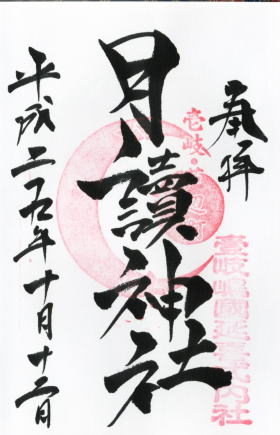 奉拝
壹岐嶋國延喜式内社
壱岐・芦辺町
月讀神社
平成二五年十月十二日